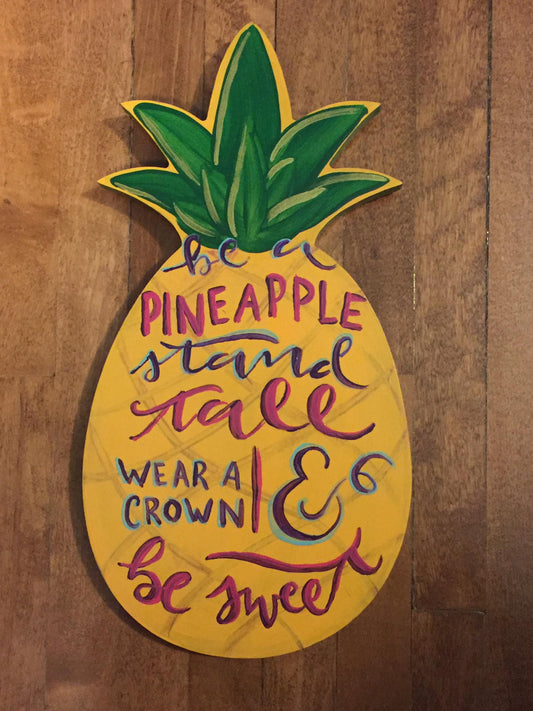 be a
PINEAPPLE
stand
tall
WEAR A
CROWN
&
be sweet